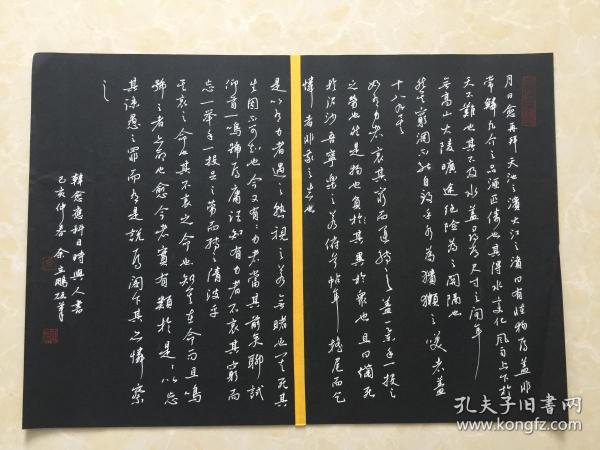 月日愈再拜天池之濱大江之濆曰有怪物焉蓋非
常鱗凡介之品滙匹儔也其得水變化風雨上下於
天不難也其不及水蓋尋常尺寸之間耳
無高山大陵曠途絕險為之關隔也
然其窮涸不能自致乎水為獱獺之笑者蓋
十八九矣
如有力者哀其窮而運轉之蓋一舉手一投足
之勞也然是物也負其異於眾也且曰爛死
於沙泥吾寧樂之若俯首帖耳搖尾而乞
憐者非我之志也
是以有力者遇之熟視之若無睹也其死其
生固不可知也今又有有力者當其前矣聊試
仰首一鳴號焉庸詎知有力者不哀其窮而
忘一舉手一投足之勞而轉之清波乎
其哀之命也其不哀之命也知其在命而且鳴
號之者亦命也愈今者實有類於是是以忘
其疏愚之罪而有是說焉閣下其亦憐察
之
韓愈應科目時與人書
己亥仲春 余立鵬硬筆
孔夫子旧书网
www.kongfz.com